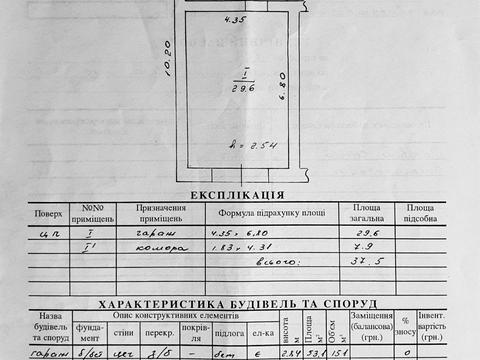 4.35
10.20
I
29.6
6.80
h = 2.54
ЕКСПЛІКАЦІЯ
Поверх №№ приміщень Призначення приміщень Формула підрахунку площі Площа загальна Площа підсобна
ц.п I гараж 4.35 х 6,80 29.6
I¹ комора 1.83 х 4.31 7.9
всього: 37,5
ХАРАКТЕРИСТИКА БУДІВЕЛЬ ТА СПОРУД
Назва будівель та споруд Опис конструктивних елементів висота м Площа м² Об'єм м³ Заміщення (балансова) (грн.) % зносу Інвент. вартість (грн.)
фунда-мент стіни перекр. покрів-ля підлога ел-ка
гараж б/бет цег з/б - бет є 2.84 53,1 151 0